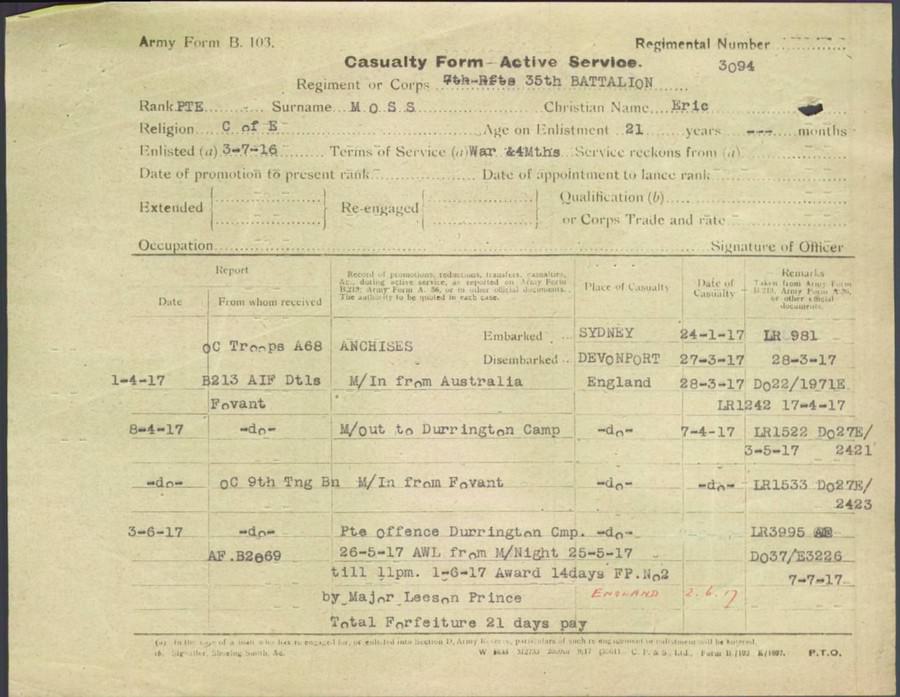 Army Form B. 103.
Regimental Number
Casualty Form - Active Service.
3094
Regiment or Corps 7th-Rfts 35th BATTALION
Rank PTE Surname M O S S Christian Name Eric
Religion C of E Age on Enlistment 21 years --- months
Enlisted (a) 3-7-16 Terms of Service (a) War &4Mths Service reckons from (a)
Date of promotion to present rank Date of appointment to lance rank
Extended Re-engaged Qualification (b)
or Corps Trade and rate
Occupation Signature of Officer
Report Record of promotions, reductions, transfers, casualties, &c., during active service, as reported on Army Form B.213, Army Form A. 36, or in other official documents. The authority to be quoted in each case. Place of Casualty Date of Casualty Remarks Taken from Army Form B.213, Army Form A.36, or other official documents.
Date From whom received
Embarked SYDNEY 24-1-17 LR 981
OC Troops A68 ANCHISES
Disembarked DEVONPORT 27-3-17 28-3-17
1-4-17 B213 AIF Dtls M/In from Australia England 28-3-17 DO22/1971E
Fovant LR1242 17-4-17
8-4-17 -do- M/out to Durrington Camp -do- 7-4-17 LR1522 DO27E/
3-5-17 2421
-do- OC 9th Tng Bn M/In from Fovant -do- -do- LR1533 DO27E/
2423
3-6-17 -do- Pte offence Durrington Cmp. -do- LR3995
AF.B2069 26-5-17 AWL from M/Night 25-5-17 DO37/E3226
till 11pm. 1-6-17 Award 14days FP.No2 7-7-17
by Major Leeson Prince ENGLAND 2.6.17
Total Forfeiture 21 days pay
(a) In the case of a man who has re-engaged for, or enlisted into Section D, Army Reserve, particulars of such re-engagement or enlistment will be entered.
Signaller, Shoeing Smith, &c. C. P. & S., Ltd., Form B./103 P.T.O.